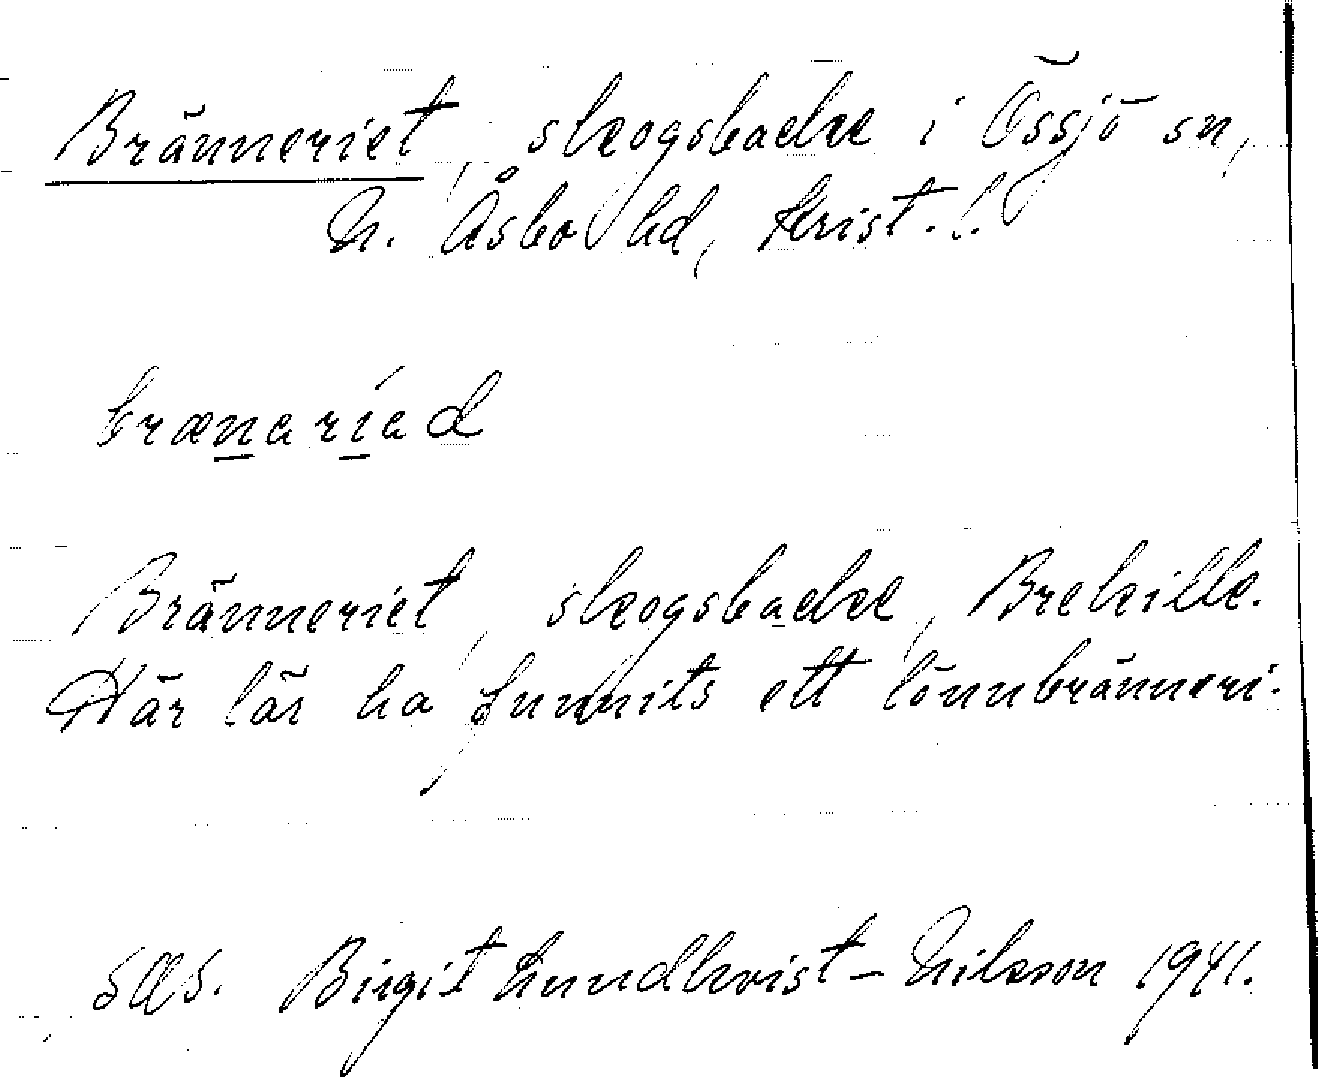 Bränneriet, skogsbacke i Össjö sn,
N. Åsbo hd, Krist. l.
brænaríad
Bränneriet, skogsbacke, Brekille.
Här lär ha funnits ett lönnbränneri.
Birgit Lundkvist-Nilsson 1941.